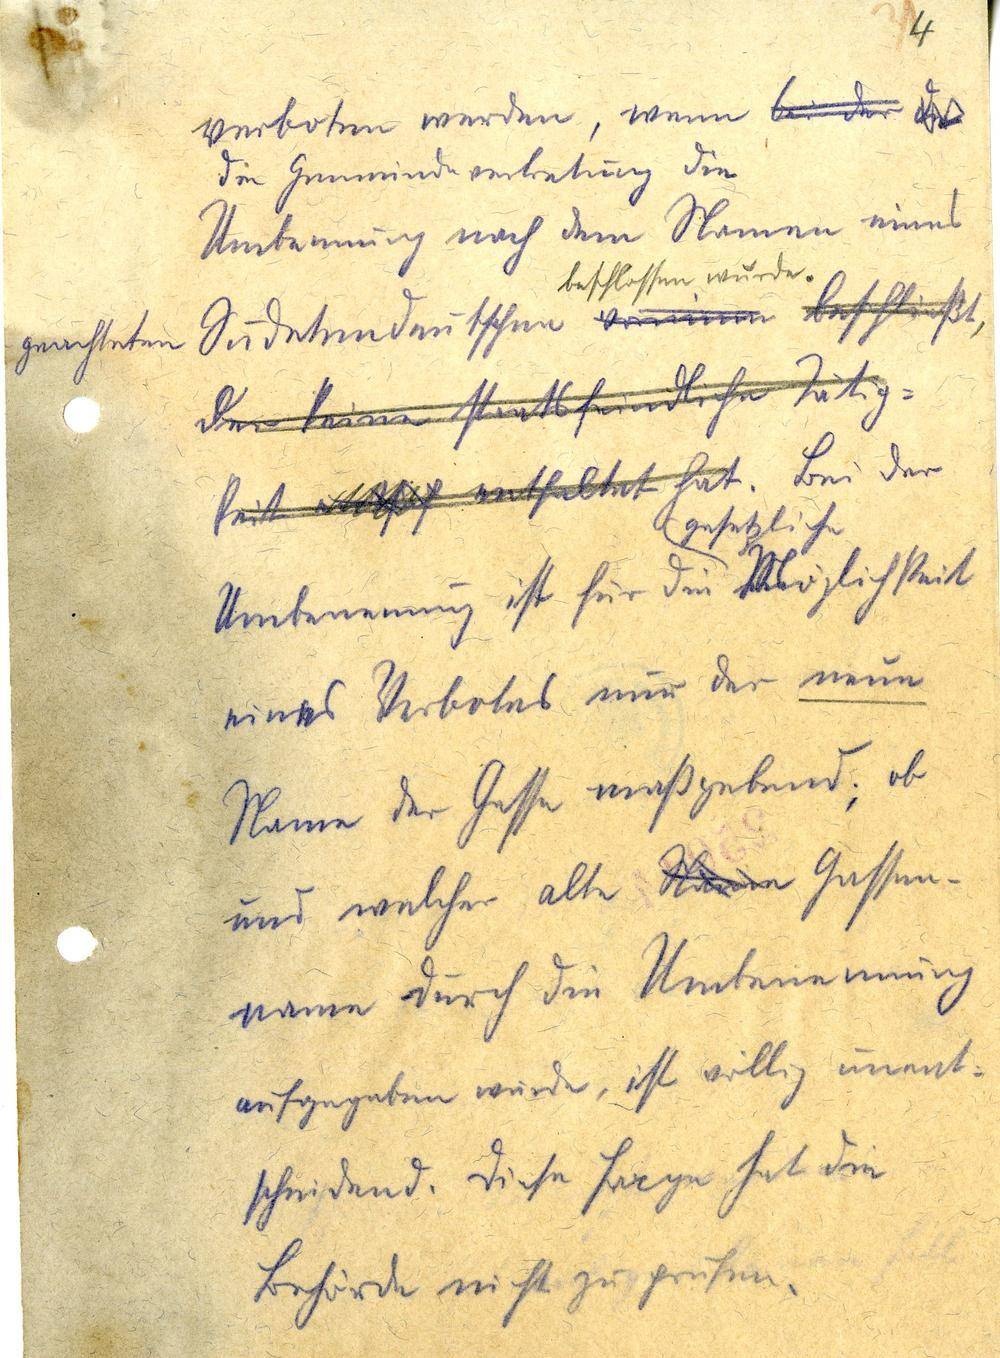 4
verboten werden, wenn bei der
die Gemeindevertretung die
Umbennung nach dem Namen eines
beschlossen wurde.
geachteten Sudetendeutschen beschließt,
der keine staatsfeindliche Tätig=
keit entfaltet hat. Bei der
gesetzliche
Umbenennung ist für die Möglichkeit
eines Verbotes nur der neue
Name der Gasse maßgebend; ob
und welcher alte Name Gassen-
name durch die Umbenennung
aufgegeben wurde, ist völlig unent=
scheidend. Diese Frage hat die
Behörde nicht zu prüfen.